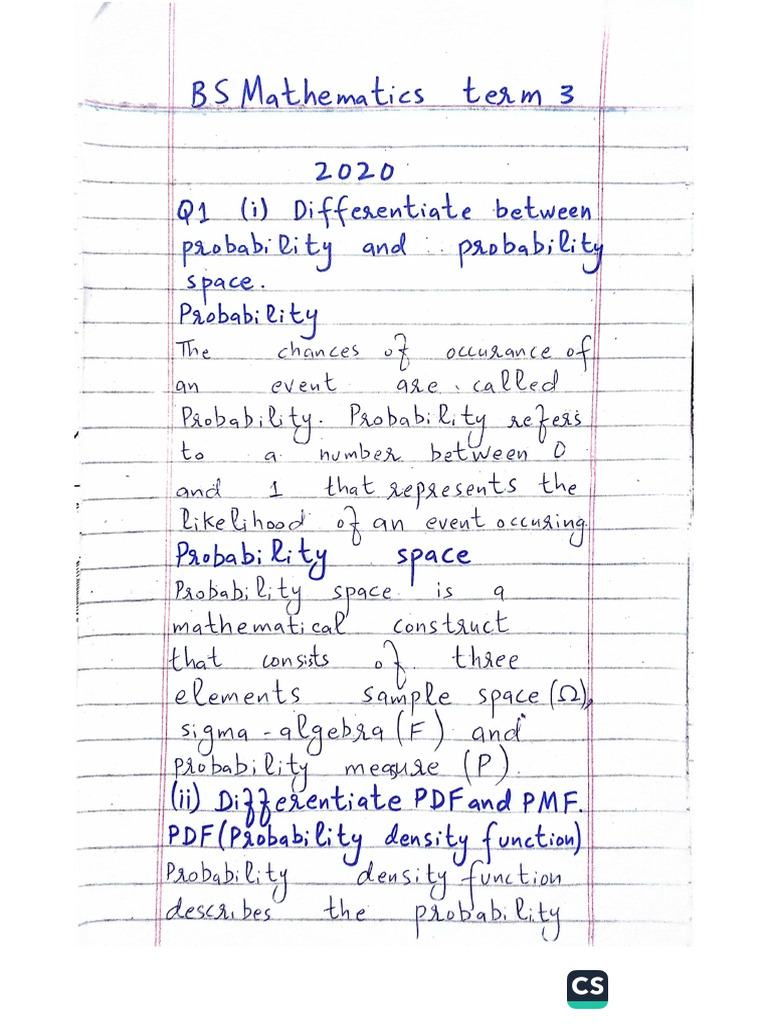 BS Mathematics term 3
2020
Q1 (i) Differentiate between
probability and probability
space.
Probability
The chances of occurance of
an event are called
Probability. Probability refers
to a number between 0
and 1 that represents the
likelihood of an event occuring.
Probability space
Probability space is a
mathematical construct
that consists of three
elements sample space (Ω),
sigma-algebra (F) and
probability measure (P).
(ii) Differentiate PDF and PMF.
PDF (Probability density function)
Probability density function
describes the probability
CS